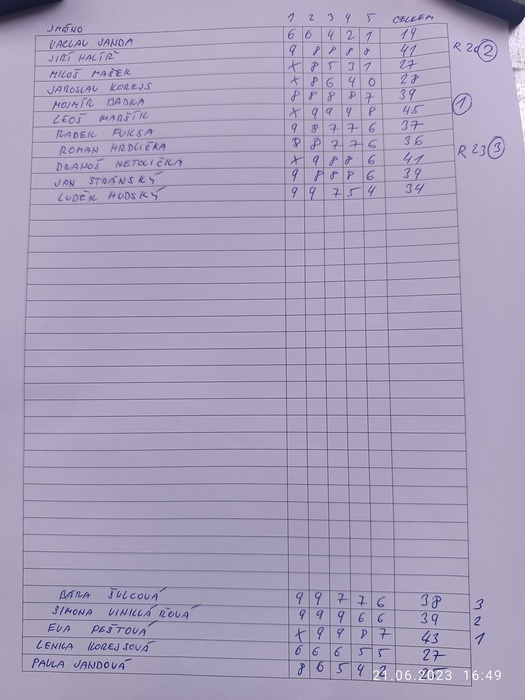 JMÉNO 1 2 3 4 5 CELKEM
VÁCLAV JANDA 6 6 4 2 1 19
JIŘÍ HALÍŘ 9 8 8 8 8 41 R 20 2
MILOŠ MAŠEK X 8 5 3 1 27
JAROSLAV KOREJS X 8 6 4 0 28
MOJMÍR 8 8 8 8 7 39
LEOŠ MARŠÍK X 9 9 9 8 45 1
RADEK FUKSA 9 8 7 7 6 37
ROMAN HRDLIČKA 8 8 7 7 6 36
DRAHOŠ NETOLIČKA X 9 8 8 6 41 R 23 3
JAN STRÁNSKÝ 9 8 8 8 6 39
LUDĚK HUDSKÝ 9 9 7 5 4 34
BÁRA ŠULCOVÁ 9 9 7 7 6 38 3
SIMONA 9 9 9 6 6 39 2
EVA PEŠTOVÁ X 9 9 8 7 43 1
LENKA KOREJSOVÁ 6 6 6 5 5 27
PAULA JANDOVÁ 8 6 5 4 2
21.06.2023 16:49